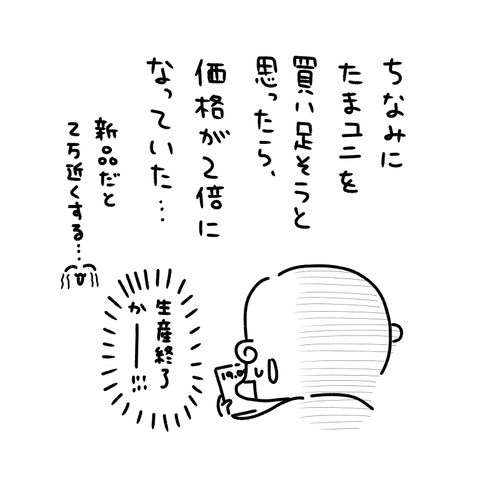 ちなみに
たまユニを
買い足そうと
思ったら、
価格が2倍に
なっていた…
新品だと
2万近くする…
生産終了
かーー!!!
19.0